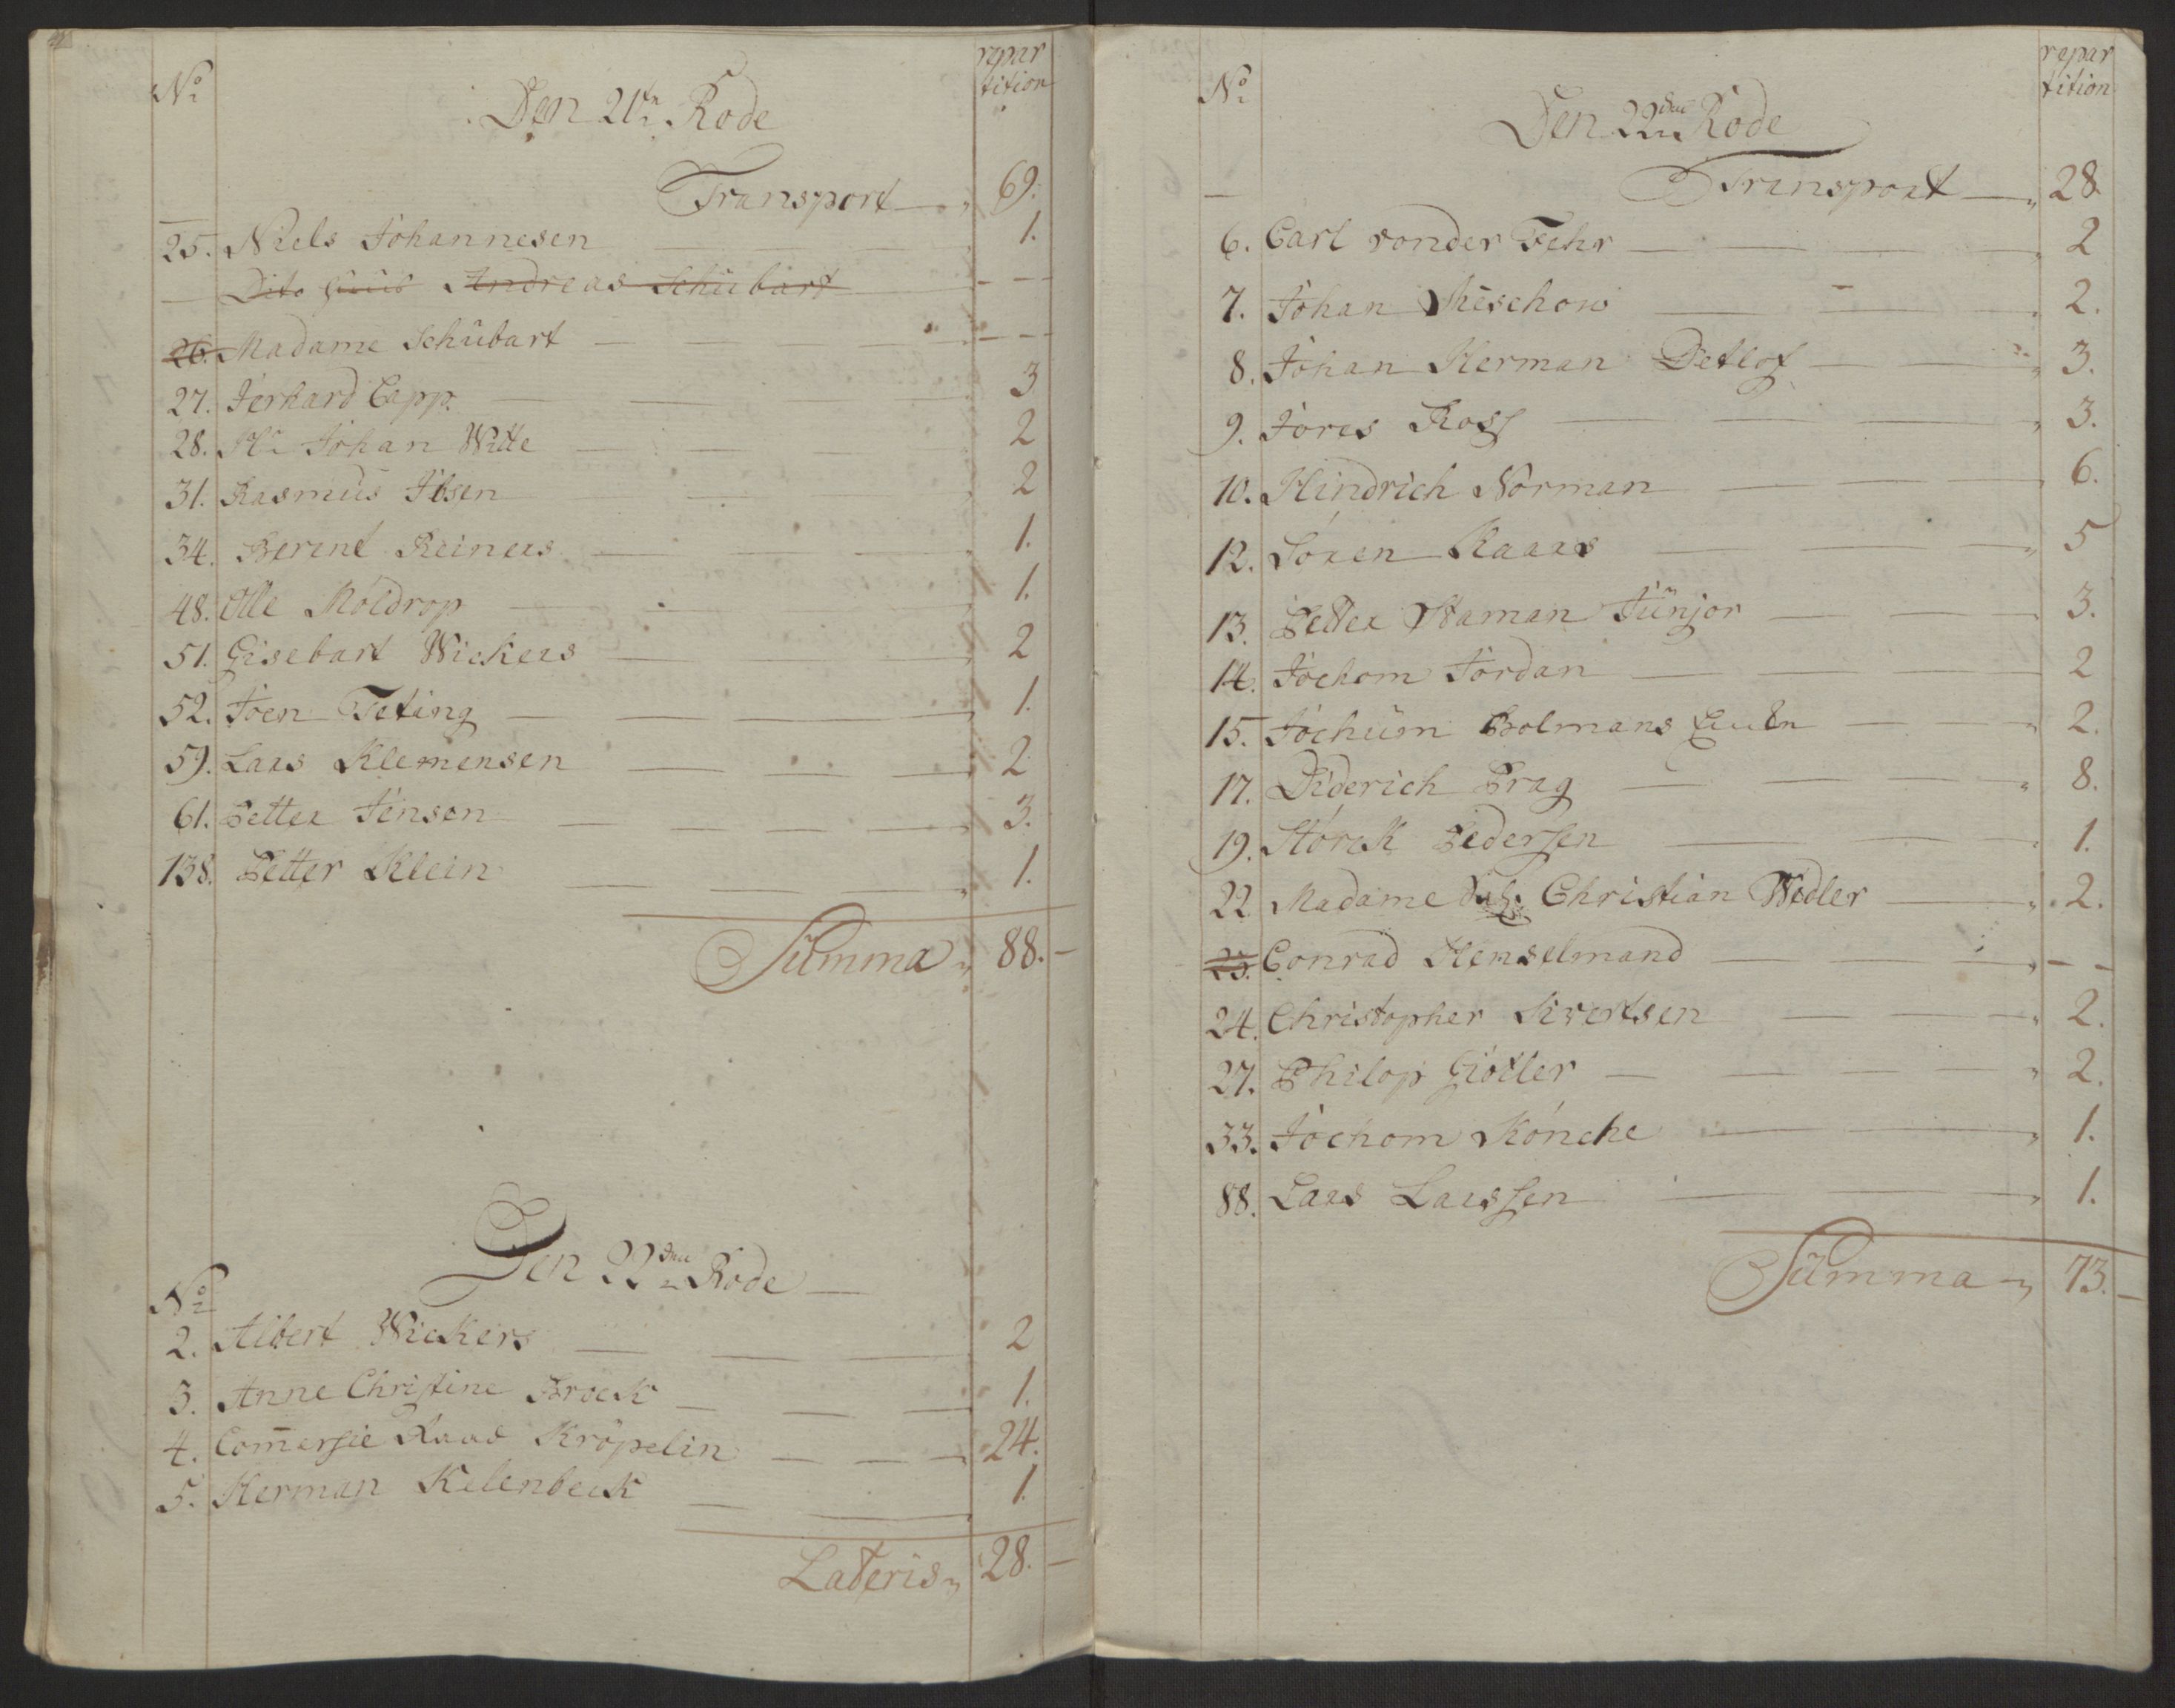 No repar
tition
Den 21tn Rode
Transport 69.
25. Niels Johannesen 1.
Dito Huus Andreas Schubart - -
26. Madame Schubart - -
27. Jerhard Capp. 3
28. Hr Johan Witte 2
31. Rasmus Ibsen 2
34. Berent Reiners 1.
48. Olle Moldrop 1.
51. Gisebart Wickers 2
52. Joen Teting 1.
59. Lars Klemensen 2
61. Petter Jenson 3.
138. Petter Klein 1.
Summa 88.
Den 22den Rode
No
2. Albert Wickers 2
3. Anne Christine Brock 1.
4. Comersie Raad Kröpelin 24.
5. Herman Kelenbeck 1.
Lateris 28.
No repar
tition
Den 22den Rode
Transport 28
6. Carl vonder Fehr 2
7. Johan Meschow 2.
8. Johan Herman Detlof 3.
9. Jores Ross 3.
10. Hindrich Norman 6.
12. Sören Kaars 5
13. Petter Haman Junjor 3.
14. Jochom Jordan 2
15. Jochum Bolmans 2.
17. Diderich Prag 8.
19. Störck Pedersen 1.
22 Madame Christian Wedler 2.
23. Conrad Henselmand - -
24. Christopher Sivertsen 2.
27. Philop Giötler 2.
33. Jochom Könche 1.
88. Lars Larssen 1.
Summa 73.